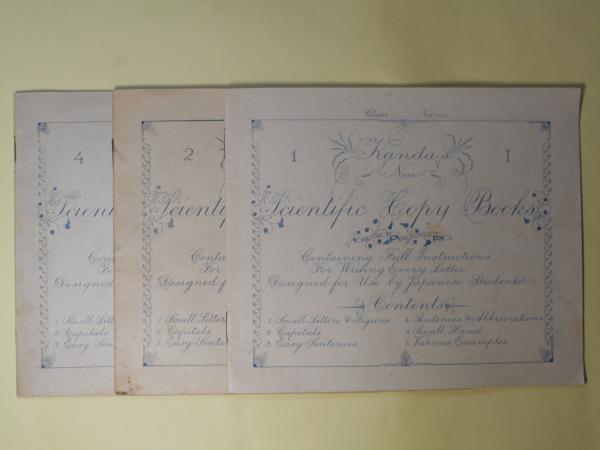 4
Scientif
Con
Designed
1. Small Lett
2. Capitals
3. Easy Sent
2
Scientif
Conta
For
Designed f
1. Small Letter
2. Capitals
3. Easy Senten
Class Name
1 Kanda's I
New
Scientific Copy Books
Containing Full Instructions
For Writing Every Letter
Designed for Use by Japanese Students
Contents
1. Small Letters & Figures
2. Capitals
3. Easy Sentences
4. Sentences & Abbreviations
5. Small Hand
6. Various Examples